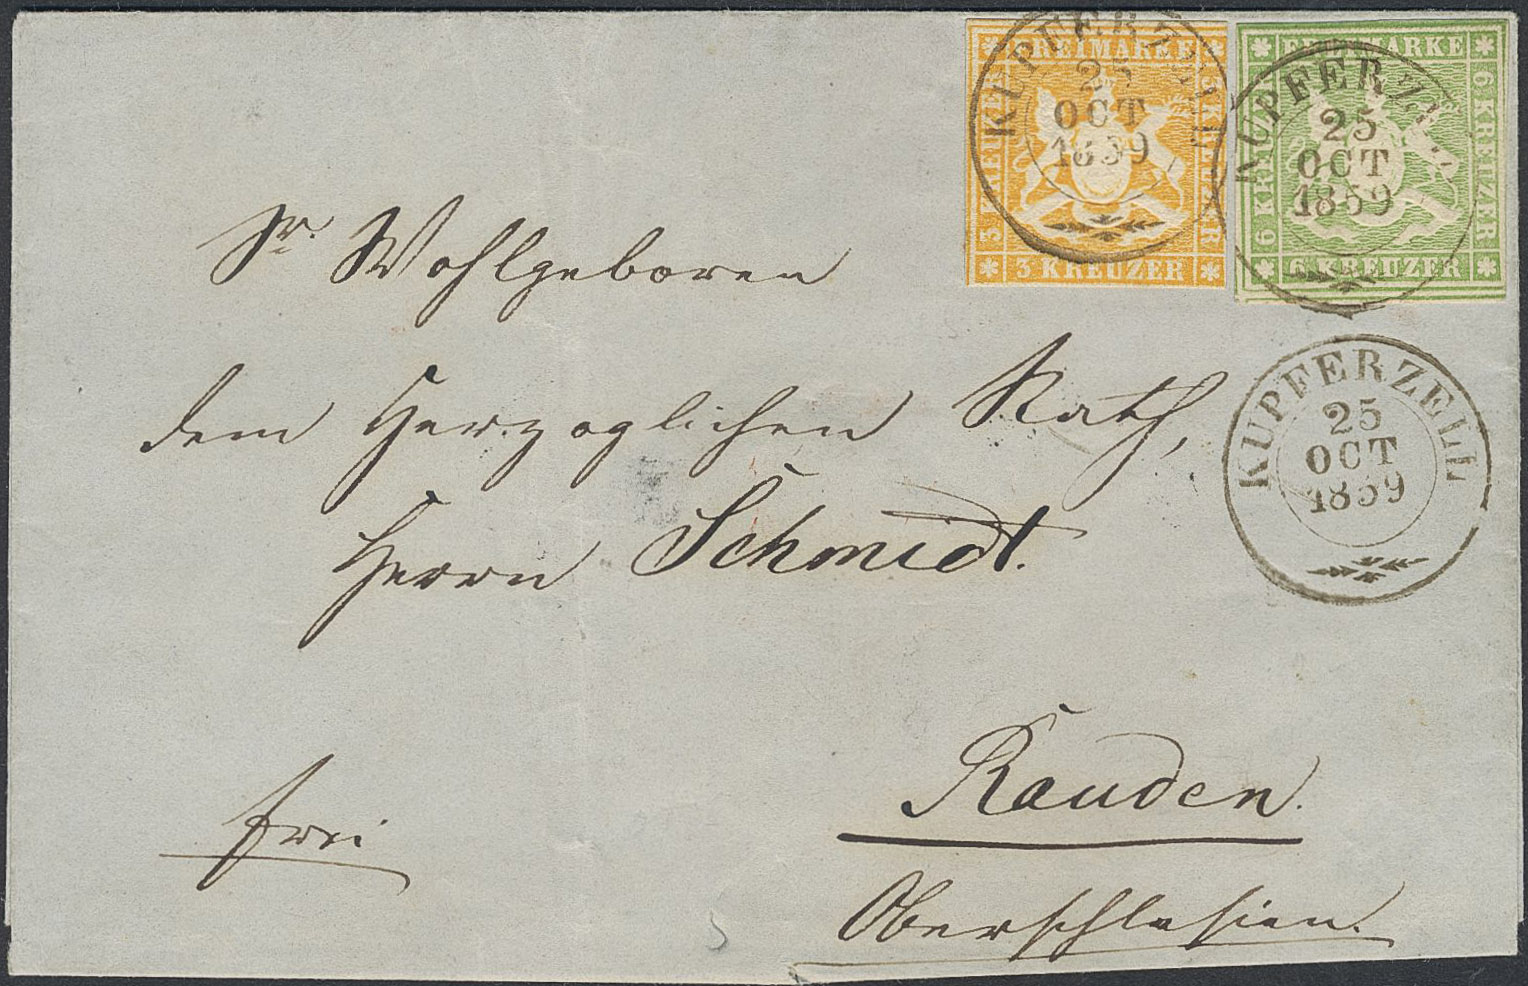 FREIMARKE
3 KREUZER
3 KREUZER
3 KREUZER
KUPFERZELL
25
OCT
1859
FREIMARKE
6 KREUZER
6 KREUZER
6 KREUZER
KUPFERZELL
25
OCT
1859
KUPFERZELL
25
OCT
1859
Sr. Wohlgeboren
dem Herzoglichen Rath,
Herrn Schmidt.
Rauden.
frei
Oberschlesien.